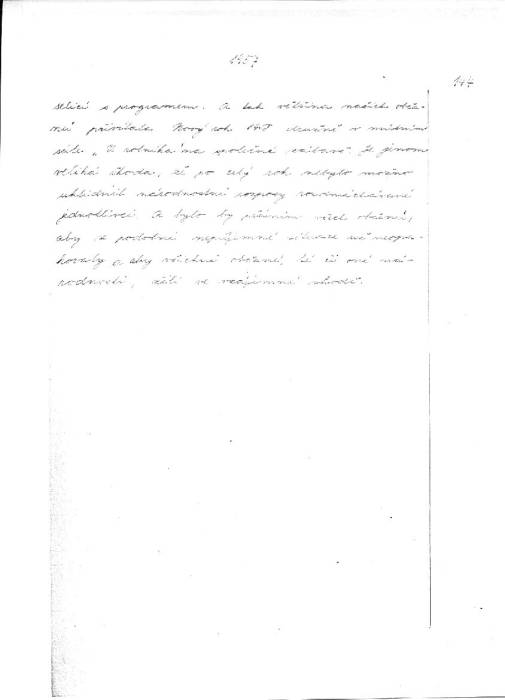 1957
144
selící s programem. A tak většina našich obča-
nů přivítala Nový rok družně v místním
sále „U rolníka" na společné zábavě. Je jenom
veliká škoda, že po celý rok nebylo možno
uklidnit národnostní rozpory
jednotlivci. A bylo by přáním všech občanů,
aby se podobné nepříjemné situace už neopa-
kovaly a aby všichni občané, té či oné ná-
rodnosti, žili ve vzájemné shodě.